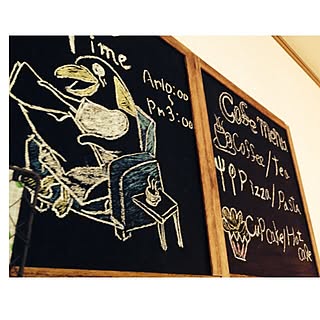 Time
Am10:00
~
Pm3:00
Cafe menu
Coffee/Tea
Pizza/Pasta
Cupcake/Hot
cake